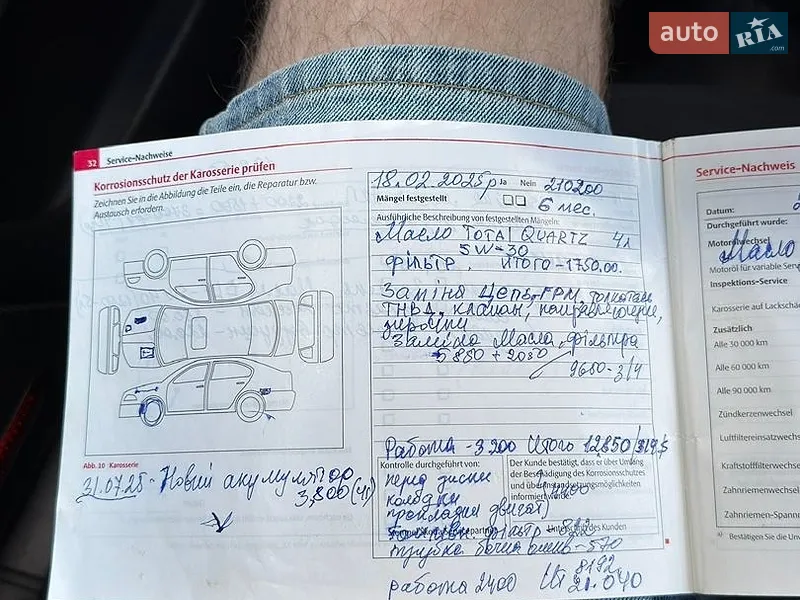 auto RIA.com
32 Service-Nachweise
Korrosionsschutz der Karosserie prüfen
Zeichnen Sie in die Abbildung die Teile ein, die Reparatur bzw.
Austausch erfordern.
Abb. 20 Karosserie
31.07.25 - Новий акумулятор
3,800 (чі)
18.02.2025р Ja Nein 210200
Mängel festgestellt 6 мес.
Ausführliche Beschreibung von festgestellten Mängeln:
Масло TOTAL QUARTZ 4л
5W-30
Фільтр, итого - 1750.00.
Заміна Цепь ГРМ, толкатель
ТНВД, клапан, направляющие,
Заміна Масла, фільтра
5850 + 2050
9650 - З/Ч
Работа - 3200 Итого 12,850/319$
Kontrolle durchgeführt von:
Der Kunde bestätigt, dass er über Umfang
der Beschädigung des Korrosionsschutzes
und über Instandsetzungsmöglichkeiten
informiert wurde:
перед диски
колодки
прокладки двигат)
фільтр 822
Unterschrift des Kunden
- 570
8192
работа 2400 Ит 21.040
Service-Nachweis
Datum:
Durchgeführt wurde:
Motorölwechsel
Масло
Motoröl für variable Serv
Inspektions-Service
Karosserie auf Lackschä
Zusätzlich
Alle 30 000 km
Alle 60 000 km
Alle 90 000 km
Zündkerzenwechsel
Luftfiltereinsatzwechs
Kraftstofffilterwechsel
Zahnriemenwechsel
Zahnriemen-Spann
Bestätigen Sie die Un